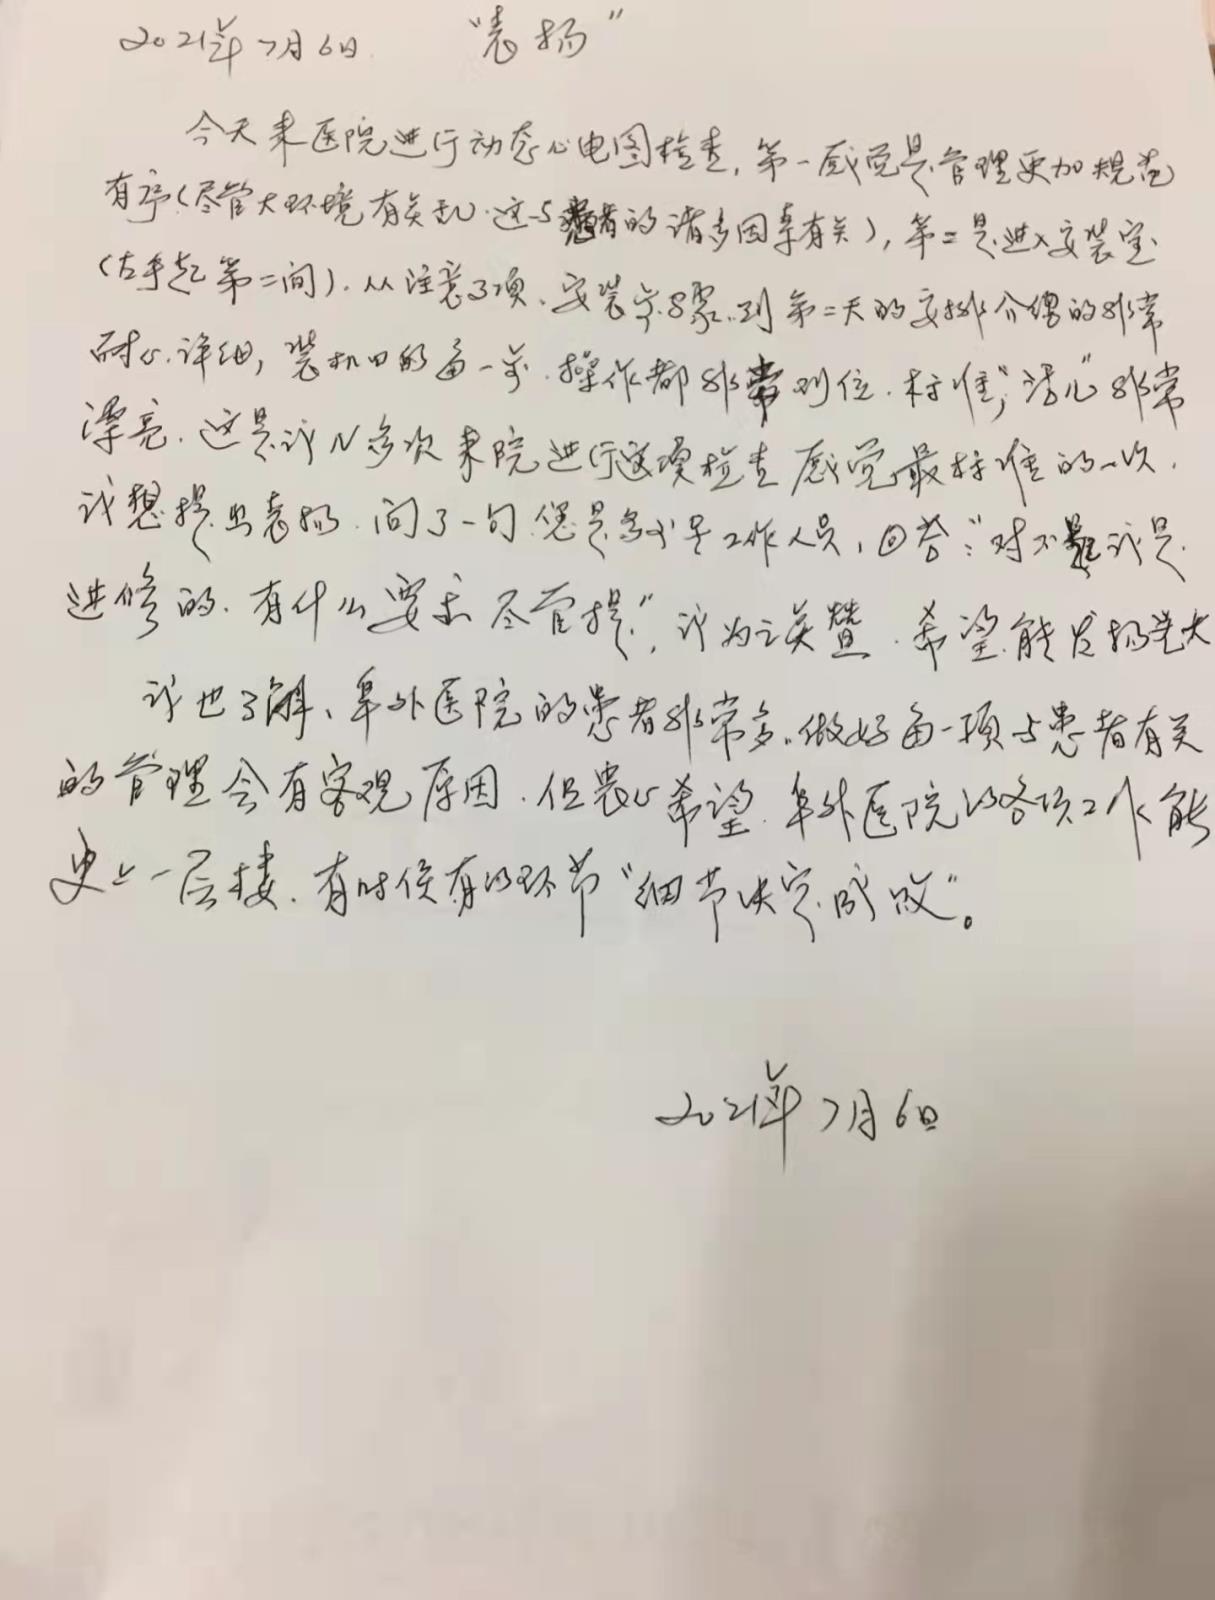 2021年7月6日 “表扬”
今天来医院进行动态心电图检查,第一感觉是管理更加规范
有序(尽管大环境有关乱.这与患者的诸多因素有关),第二是进入安装室
(右手起第二间).从注意事项、安装步骤.到第二天的安排介绍的非常
耐心.详细,装机时的每一步.操作都非常到位.标准,“活儿”非常
漂亮.这是我N多次来院进行这项检查感觉最标准的一次.
我想提出表扬.问了一句您是多少号工作人员,回答:“对不起我是
进修的.有什么要求尽管提”,我为之点赞.希望能发扬光大
我也了解、阜外医院的患者非常多.做好每一项与患者有关
的管理会有客观原因.但衷心希望.阜外医院的各项工作能
更上一层楼.有时候有的环节“细节决定成败”。
2021年7月6日